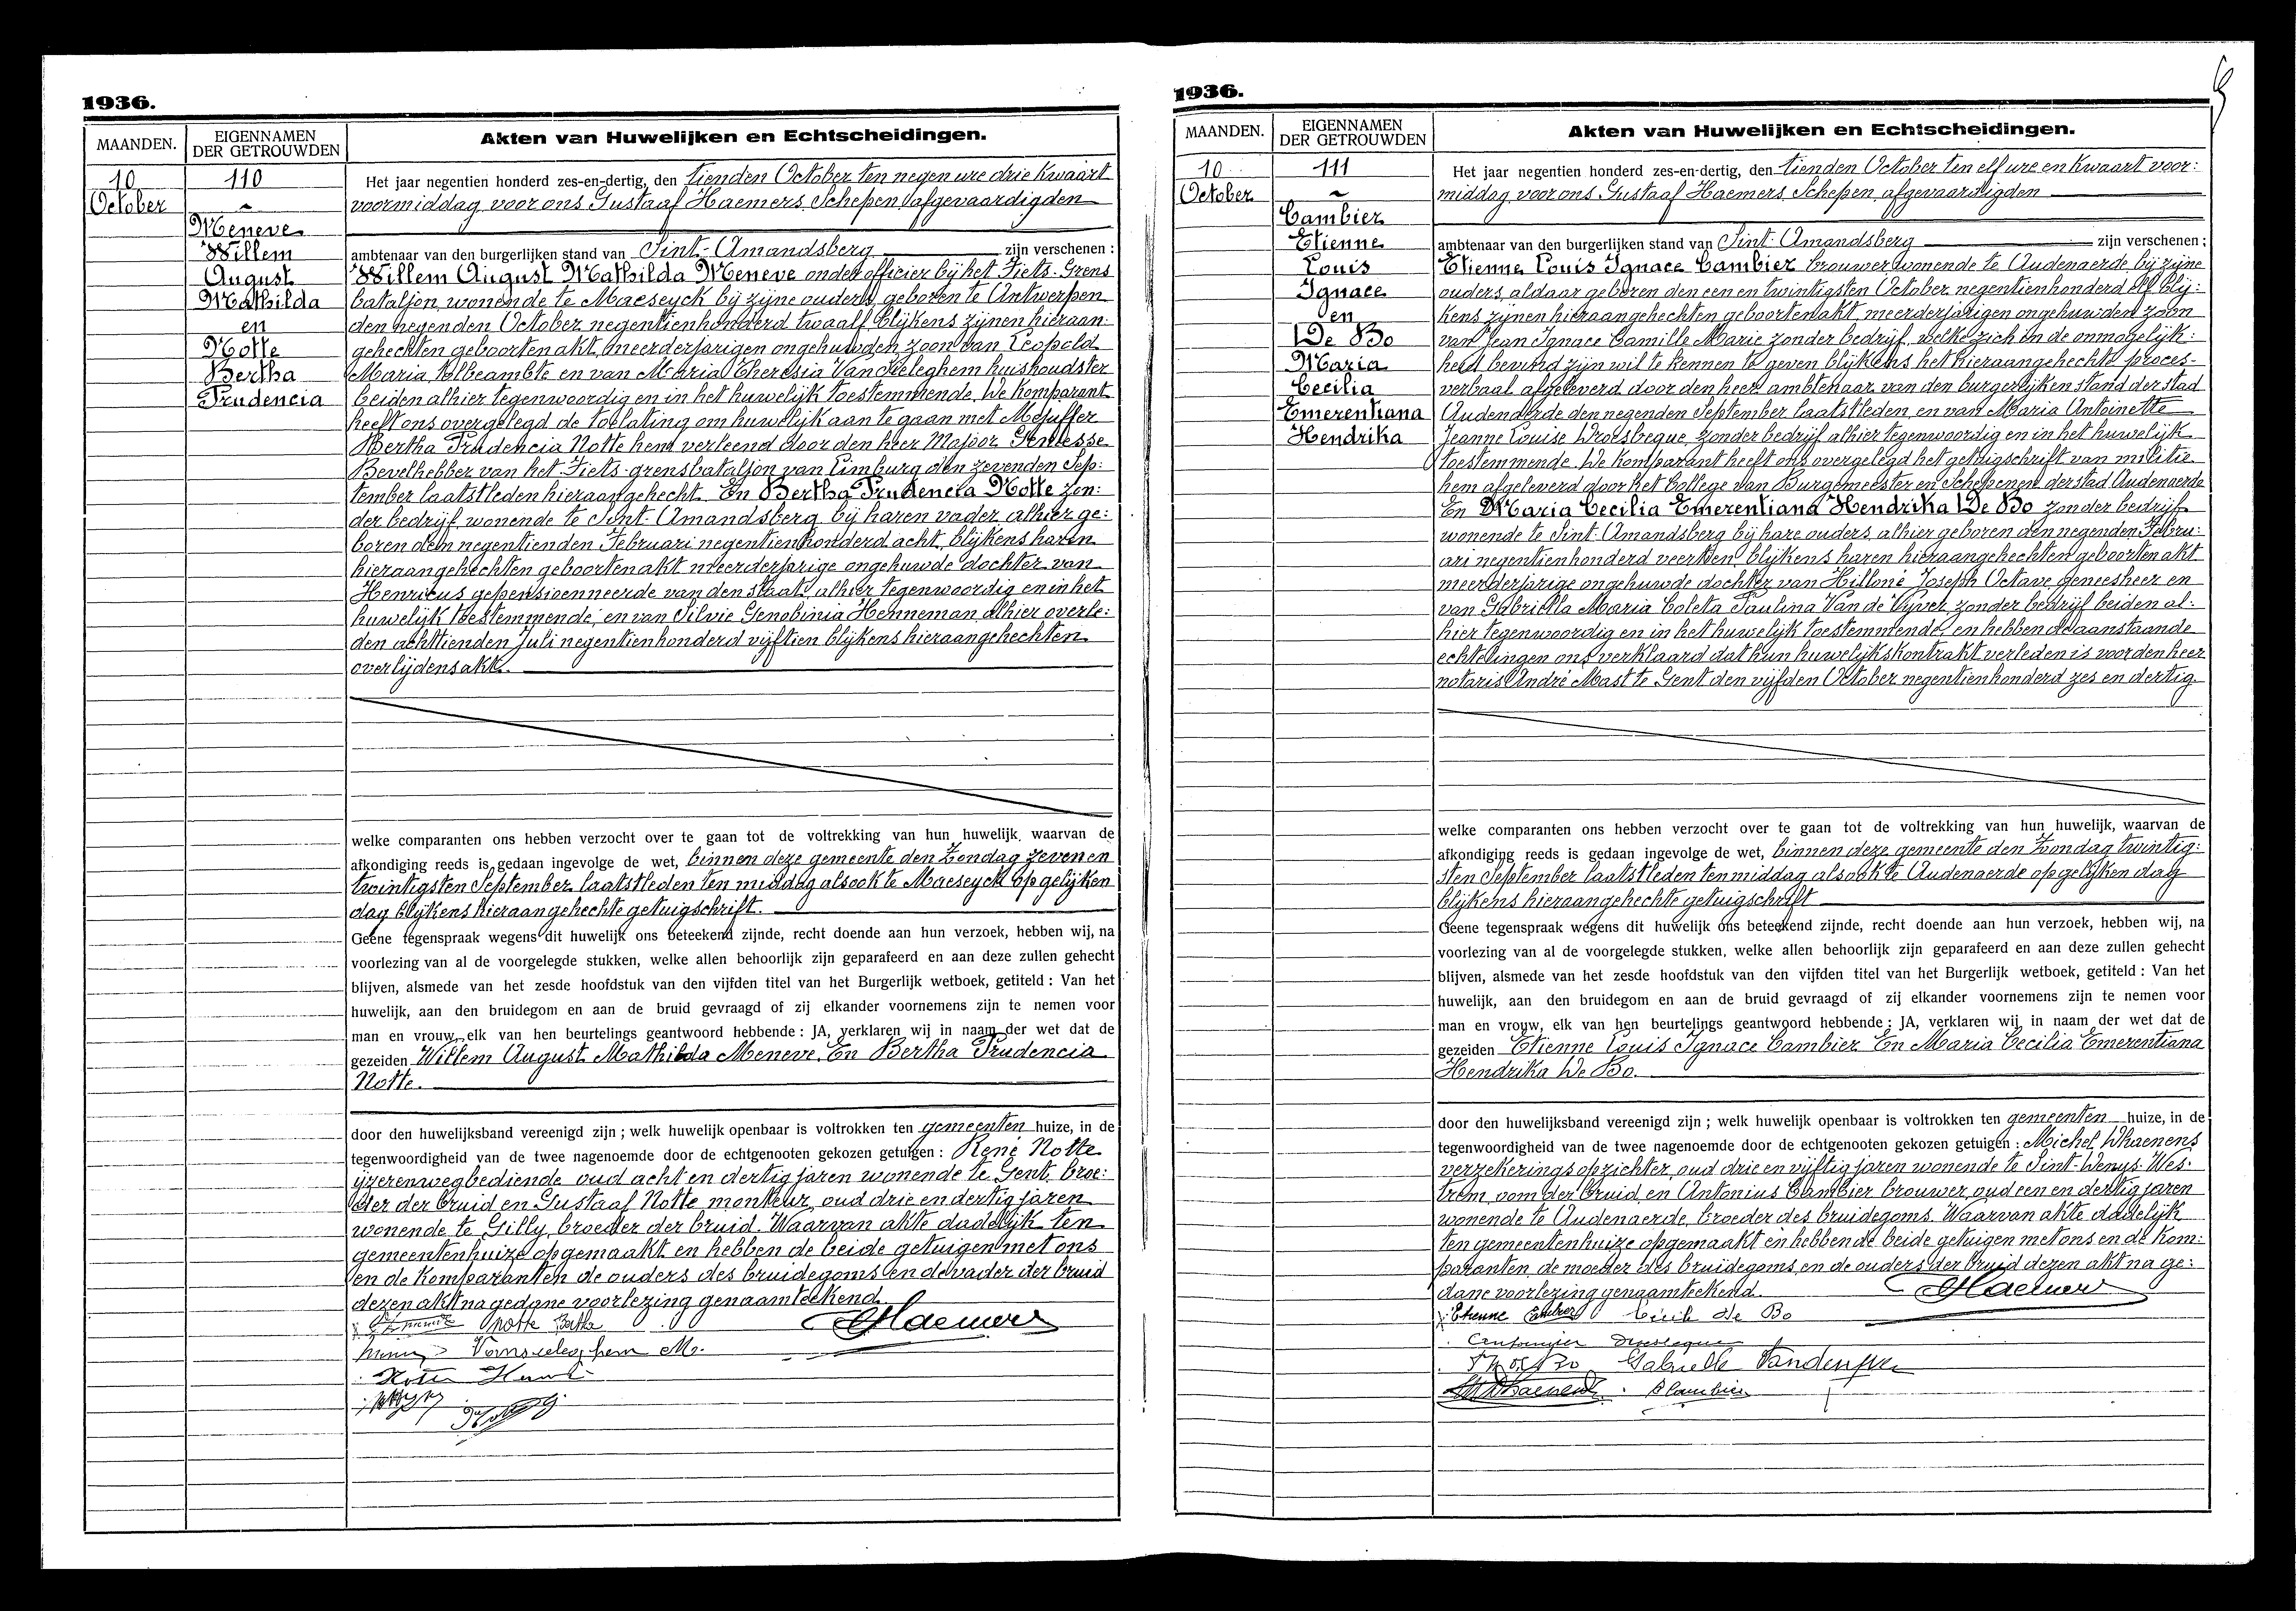 1936.
MAANDEN.
EIGENNAMEN
DER GETROUWDEN
Akten van Huwelijken en Echtscheidingen.
10
October
110
Meneve
Willem
August
Mathilda
en
Notte
Bertha
Prudencia
Het jaar negentien honderd zes-en-dertig, den tienden October ten negen ure drie kwaart
voormiddag voor ons Gustaaf Haemers Schepen afgevaardigden
ambtenaar van den burgerlijken stand van Sint-Amandsberg zijn verschenen :
Willem August Mathilda Meneve onderofficier bij het Fiets-Grens
bataljon, wonende te Maeseyck bij zijne ouders, geboren te Antwerpen
den negenden October negentienhonderd twaalf blijkens zijnen hieraan-
gehechten geboortenakt, meerderjarigen ongehuwden zoon van Leopold
Maria, tolbeambte en van Maria Theresia Van Seeleghem huishoudster
beiden alhier tegenwoordig en in het huwelijk toestemmende. De komparant
heeft ons overgelegd de toelating om huwelijk aan te gaan met Mejuffer
Bertha Prudencia Notte hem verleend door den heer Majoor
Bevelhebber van het Fiets-grensbataljon van Limburg den zevenden Sep:
tember laatstleden hieraangehecht. En Bertha Prudencia Notte zon:
der bedrijf, wonende te Sint-Amandsberg bij haren vader, alhier ge:
boren den negentienden Februari negentienhonderd acht, blijkens haren
hieraangehechten geboortenakt meerderjarige ongehuwde dochter van
Henricus gepensioenneerde van den staat, alhier tegenwoordig en in het
huwelijk toestemmende, en van Silvie Genobinia Henneman, alhier overle:
den achttienden Juli negentienhonderd vijftien blijkens hieraangehechten
overlijdensakt.
welke comparanten ons hebben verzocht over te gaan tot de voltrekking van hun huwelijk, waarvan de
afkondiging reeds is gedaan ingevolge de wet, binnen deze gemeente den Zondag zeven en
twintigsten September laatstleden ten middag alsook te Maeseyck op gelijken
dag blijkens hieraangehechte getuigschrift.
Geene tegenspraak wegens dit huwelijk ons beteekend zijnde, recht doende aan hun verzoek, hebben wij, na
voorlezing van al de voorgelegde stukken, welke allen behoorlijk zijn geparafeerd en aan deze zullen gehecht
blijven, alsmede van het zesde hoofdstuk van den vijfden titel van het Burgerlijk wetboek, getiteld : Van het
huwelijk, aan den bruidegom en aan de bruid gevraagd of zij elkander voornemens zijn te nemen voor
man en vrouw, elk van hen beurtelings geantwoord hebbende : JA, verklaren wij in naam der wet dat de
gezeiden Willem August Mathilda Meneve. En Bertha Prudencia
Notte.
door den huwelijksband vereenigd zijn ; welk huwelijk openbaar is voltrokken ten gemeenten huize, in de
tegenwoordigheid van de twee nagenoemde door de echtgenooten gekozen getuigen : René Notte
ijzerenwegbediende oud acht en dertig jaren wonende te Gent, broe:
der der bruid en Gustaaf Notte monteur, oud drie en dertig jaren
wonende te Gilly, broeder der bruid. Waarvan akte dadelijk ten
gemeentenhuize opgemaakt en hebben de beide getuigen met ons
en de komparanten de ouders des bruidegoms en de vader der bruid
dezen akt na gedane voorlezing genaamteekend.
Notte Bertha Haemers
1936.
MAANDEN.
EIGENNAMEN
DER GETROUWDEN
Akten van Huwelijken en Echtscheidingen.
10
October
111
Cambier
Etienne
Louis
Ignace
en
De Bo
Maria
Cecilia
Emerentiana
Hendrika
Het jaar negentien honderd zes-en-dertig, den tienden October ten elf ure en kwaart voor:
middag voor ons Gustaaf Haemers Schepen afgevaardigden
ambtenaar van den burgerlijken stand van Sint-Amandsberg zijn verschenen ;
Etienne Louis Ignace Cambier brouwer, wonende te Audenaerde, bij zijne
ouders, aldaar geboren den een en twintigsten October negentienhonderd elf blij:
kens zijnen hieraangehechten geboortenakt, meerderjarigen ongehuwden zoon
van Jean Ignace Camille Marie zonder bedrijf, welke zich in de onmogelijk:
heid bevind zijn wil te kennen te geven blijkens het hieraangehechte proces-
verbaal afgeleverd door den heer ambtenaar van den burgerlijken stand der stad
Audenaerde den negenden September laatstleden, en van Maria Antoinette
Jeanne Louise Droesbeque, zonder bedrijf alhier tegenwoordig en in het huwelijk
toestemmende. De komparant heeft ons overgelegd het getuigschrift van militie
hem afgeleverd door het College van Burgemeester en Schepenen der stad Audenaerde
En Maria Cecilia Emerentiana Hendrika De Bo zonder bedrijf
wonende te Sint-Amandsberg bij hare ouders, alhier geboren den negenden Febru:
ari negentienhonderd veertien blijkens haren hieraangehechten geboortenakt
meerderjarige ongehuwde dochter van Hilloné Joseph Octave geneesheer en
van Gabriella Maria Coleta Paulina Van de Vyver, zonder bedrijf beiden al:
hier tegenwoordig en in het huwelijk toestemmende, en hebben de aanstaande
echtelingen ons verklaard dat hun huwelijkskontrakt verleden is voor den heer
notaris André Mast te Gent den vijfden October negentienhonderd zes en dertig
welke comparanten ons hebben verzocht over te gaan tot de voltrekking van hun huwelijk, waarvan de
afkondiging reeds is gedaan ingevolge de wet, binnen deze gemeente den Zondag twintig:
sten September laatstleden ten middag alsook te Audenaerde op gelijken dag
blijkens hieraangehechte getuigschrift
Geene tegenspraak wegens dit huwelijk ons beteekend zijnde, recht doende aan hun verzoek, hebben wij, na
voorlezing van al de voorgelegde stukken, welke allen behoorlijk zijn geparafeerd en aan deze zullen gehecht
blijven, alsmede van het zesde hoofdstuk van den vijfden titel van het Burgerlijk wetboek, getiteld : Van het
huwelijk, aan den bruidegom en aan de bruid gevraagd of zij elkander voornemens zijn te nemen voor
man en vrouw, elk van hen beurtelings geantwoord hebbende : JA, verklaren wij in naam der wet dat de
gezeiden Etienne Louis Ignace Cambier En Maria Cecilia Emerentiana
Hendrika De Bo.
door den huwelijksband vereenigd zijn ; welk huwelijk openbaar is voltrokken ten gemeenten huize, in de
tegenwoordigheid van de twee nagenoemde door de echtgenooten gekozen getuigen : Michel Dhaenens
verzekeringsopzichter, oud drie en vijftig jaren wonende te Sint-Denys-Wes-
trem, oom der bruid en Antonius Cambier brouwer, oud een en dertig jaren
wonende te Audenaerde, broeder des bruidegoms. Waarvan akte dadelijk
ten gemeentenhuize opgemaakt en hebben de beide getuigen met ons en de kom:
paranten, de moeder des bruidegoms, en de ouders der bruid dezen akt na ge:
dane voorlezing genaamteekend. Haemers
Etienne Cambier Cécile de Bo
Gabrielle Vandevyver
Dhaenens A Cambier